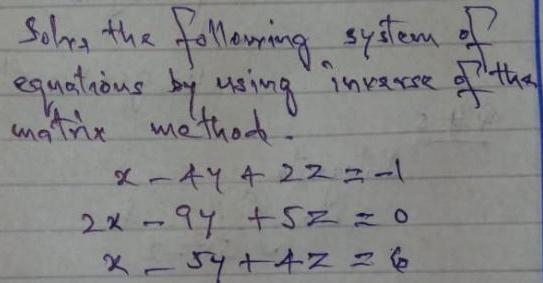 Solve the following system of
equations by using inverse of the
matrix method.
x - 4y + 2z = -1
2x - 9y + 5z = 0
x - 5y + 4z = 6